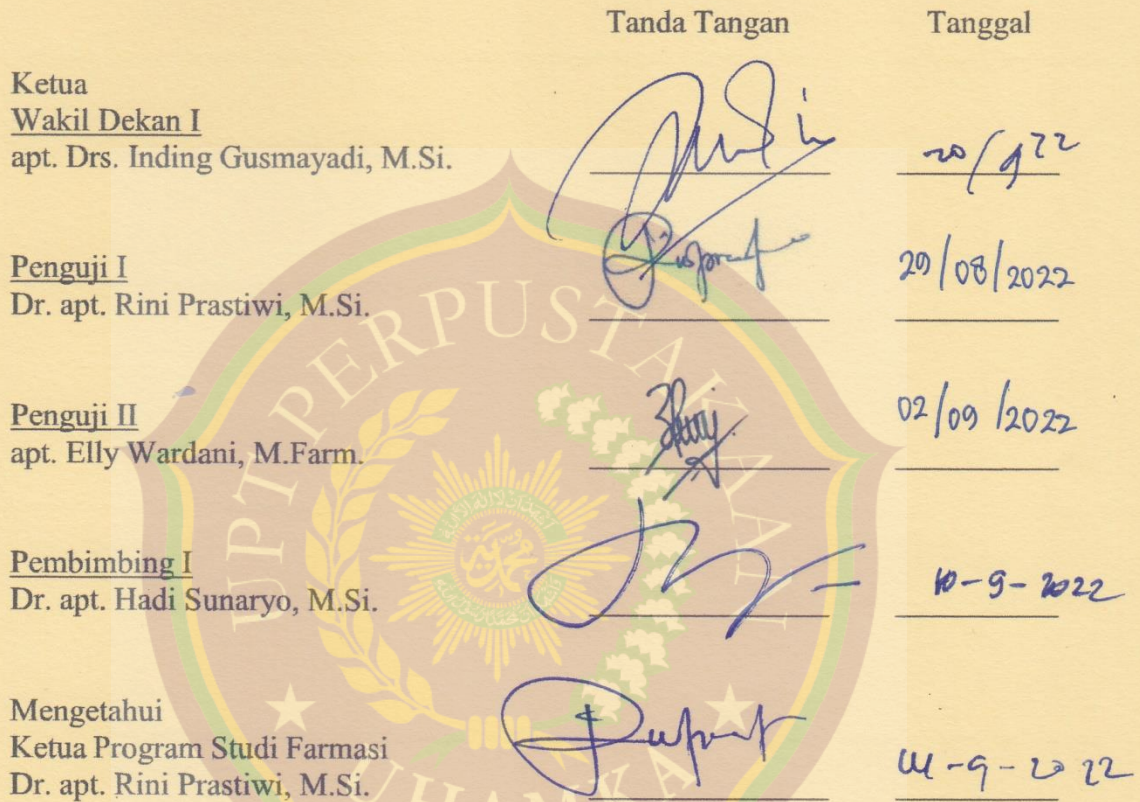 Tanda Tangan Tanggal
Ketua
Wakil Dekan I
apt. Drs. Inding Gusmayadi, M.Si.
20/9 22
Penguji I
Dr. apt. Rini Prastiwi, M.Si.
29/08/2022
Penguji II
apt. Elly Wardani, M.Farm.
02/09/2022
Pembimbing I
Dr. apt. Hadi Sunaryo, M.Si.
10-9-2022
Mengetahui
Ketua Program Studi Farmasi
Dr. apt. Rini Prastiwi, M.Si.
-9-2022
UPT PERPUSTAKAAN
UHAMKA